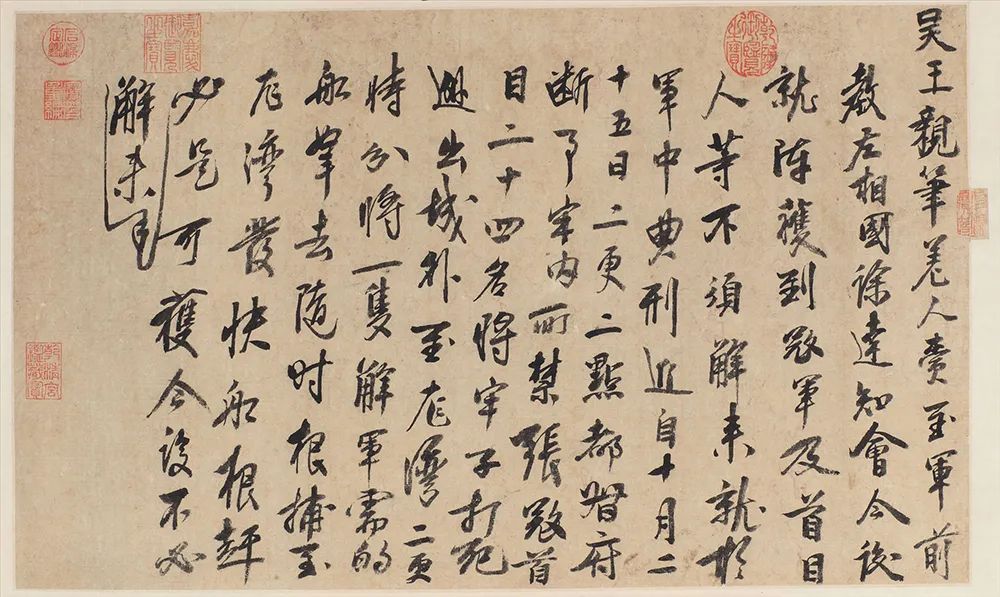 吴王親筆差人賫至軍前
教左相國徐達知會今後
就陣獲到寇軍及首目
人等不須解来就於
軍中典刑近自十月二
十五日二更二點都督府
断事牢内所禁張寇首
目二十四名將牢子打死
逃出城外至龙湾二更
時分將一隻解軍需的
船奪去随时根捕至
龙湾發快船根赶
必是可獲今後不必
解来